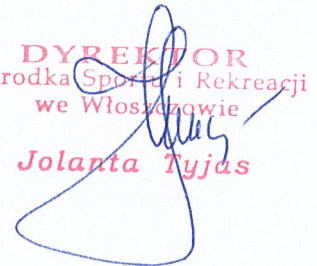 DYREKTOR
rodka Sportu i Rekreacji
we Włoszczowie
Jolanta Tyjas